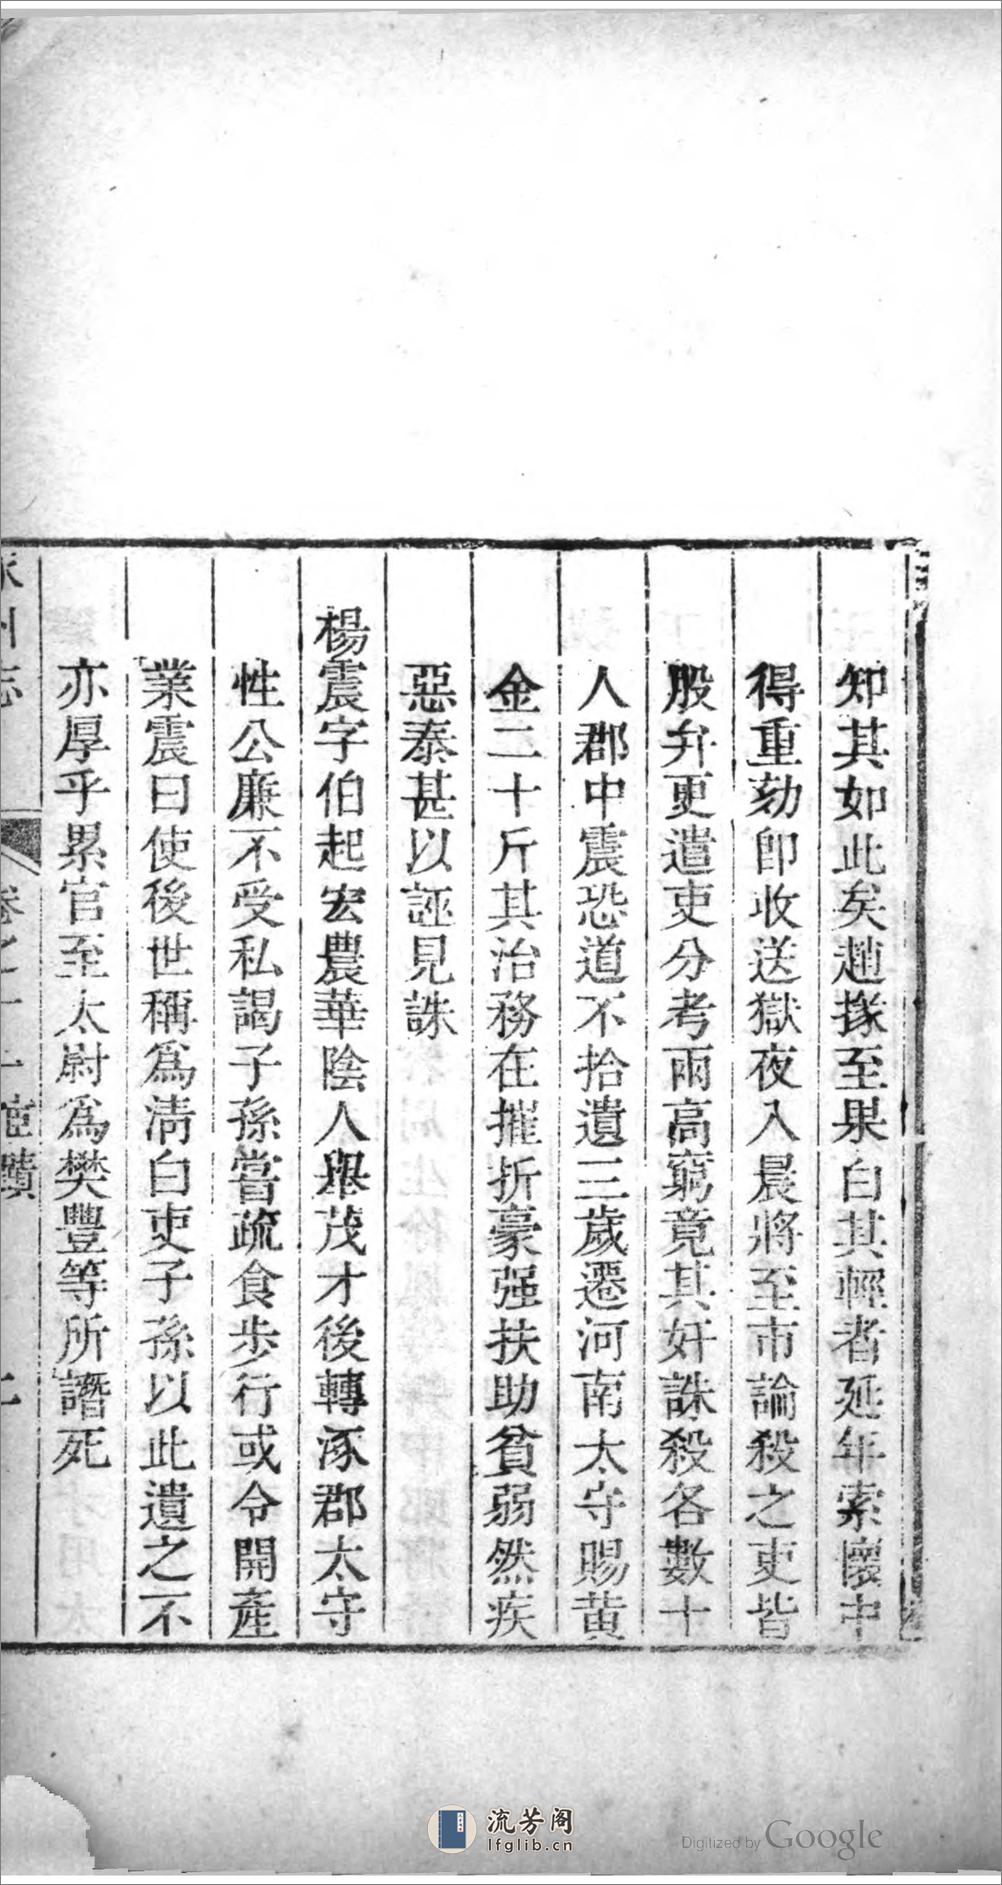 知其如此矣趙掾至果白其輕者延年索懷中
得重劾卽收送獄夜入晨將至市論殺之吏皆
股弁更遣吏分考兩高窮竟其奸誅殺各數十
人郡中震恐道不拾遺三歲遷河南太守賜黄
金二十斤其治務在摧折豪强扶助貧弱然疾
惡泰甚以誣見誅
楊震字伯起宏農華陰人舉茂才後轉涿郡太守
性公廉不受私謁子孫嘗疏食步行或令開產
業震曰使後世稱爲淸白吏子孫以此遺之不
亦厚乎累官至太尉爲樊豐等所譖死
流芳阁
lfglib.cn
Digitized by Google